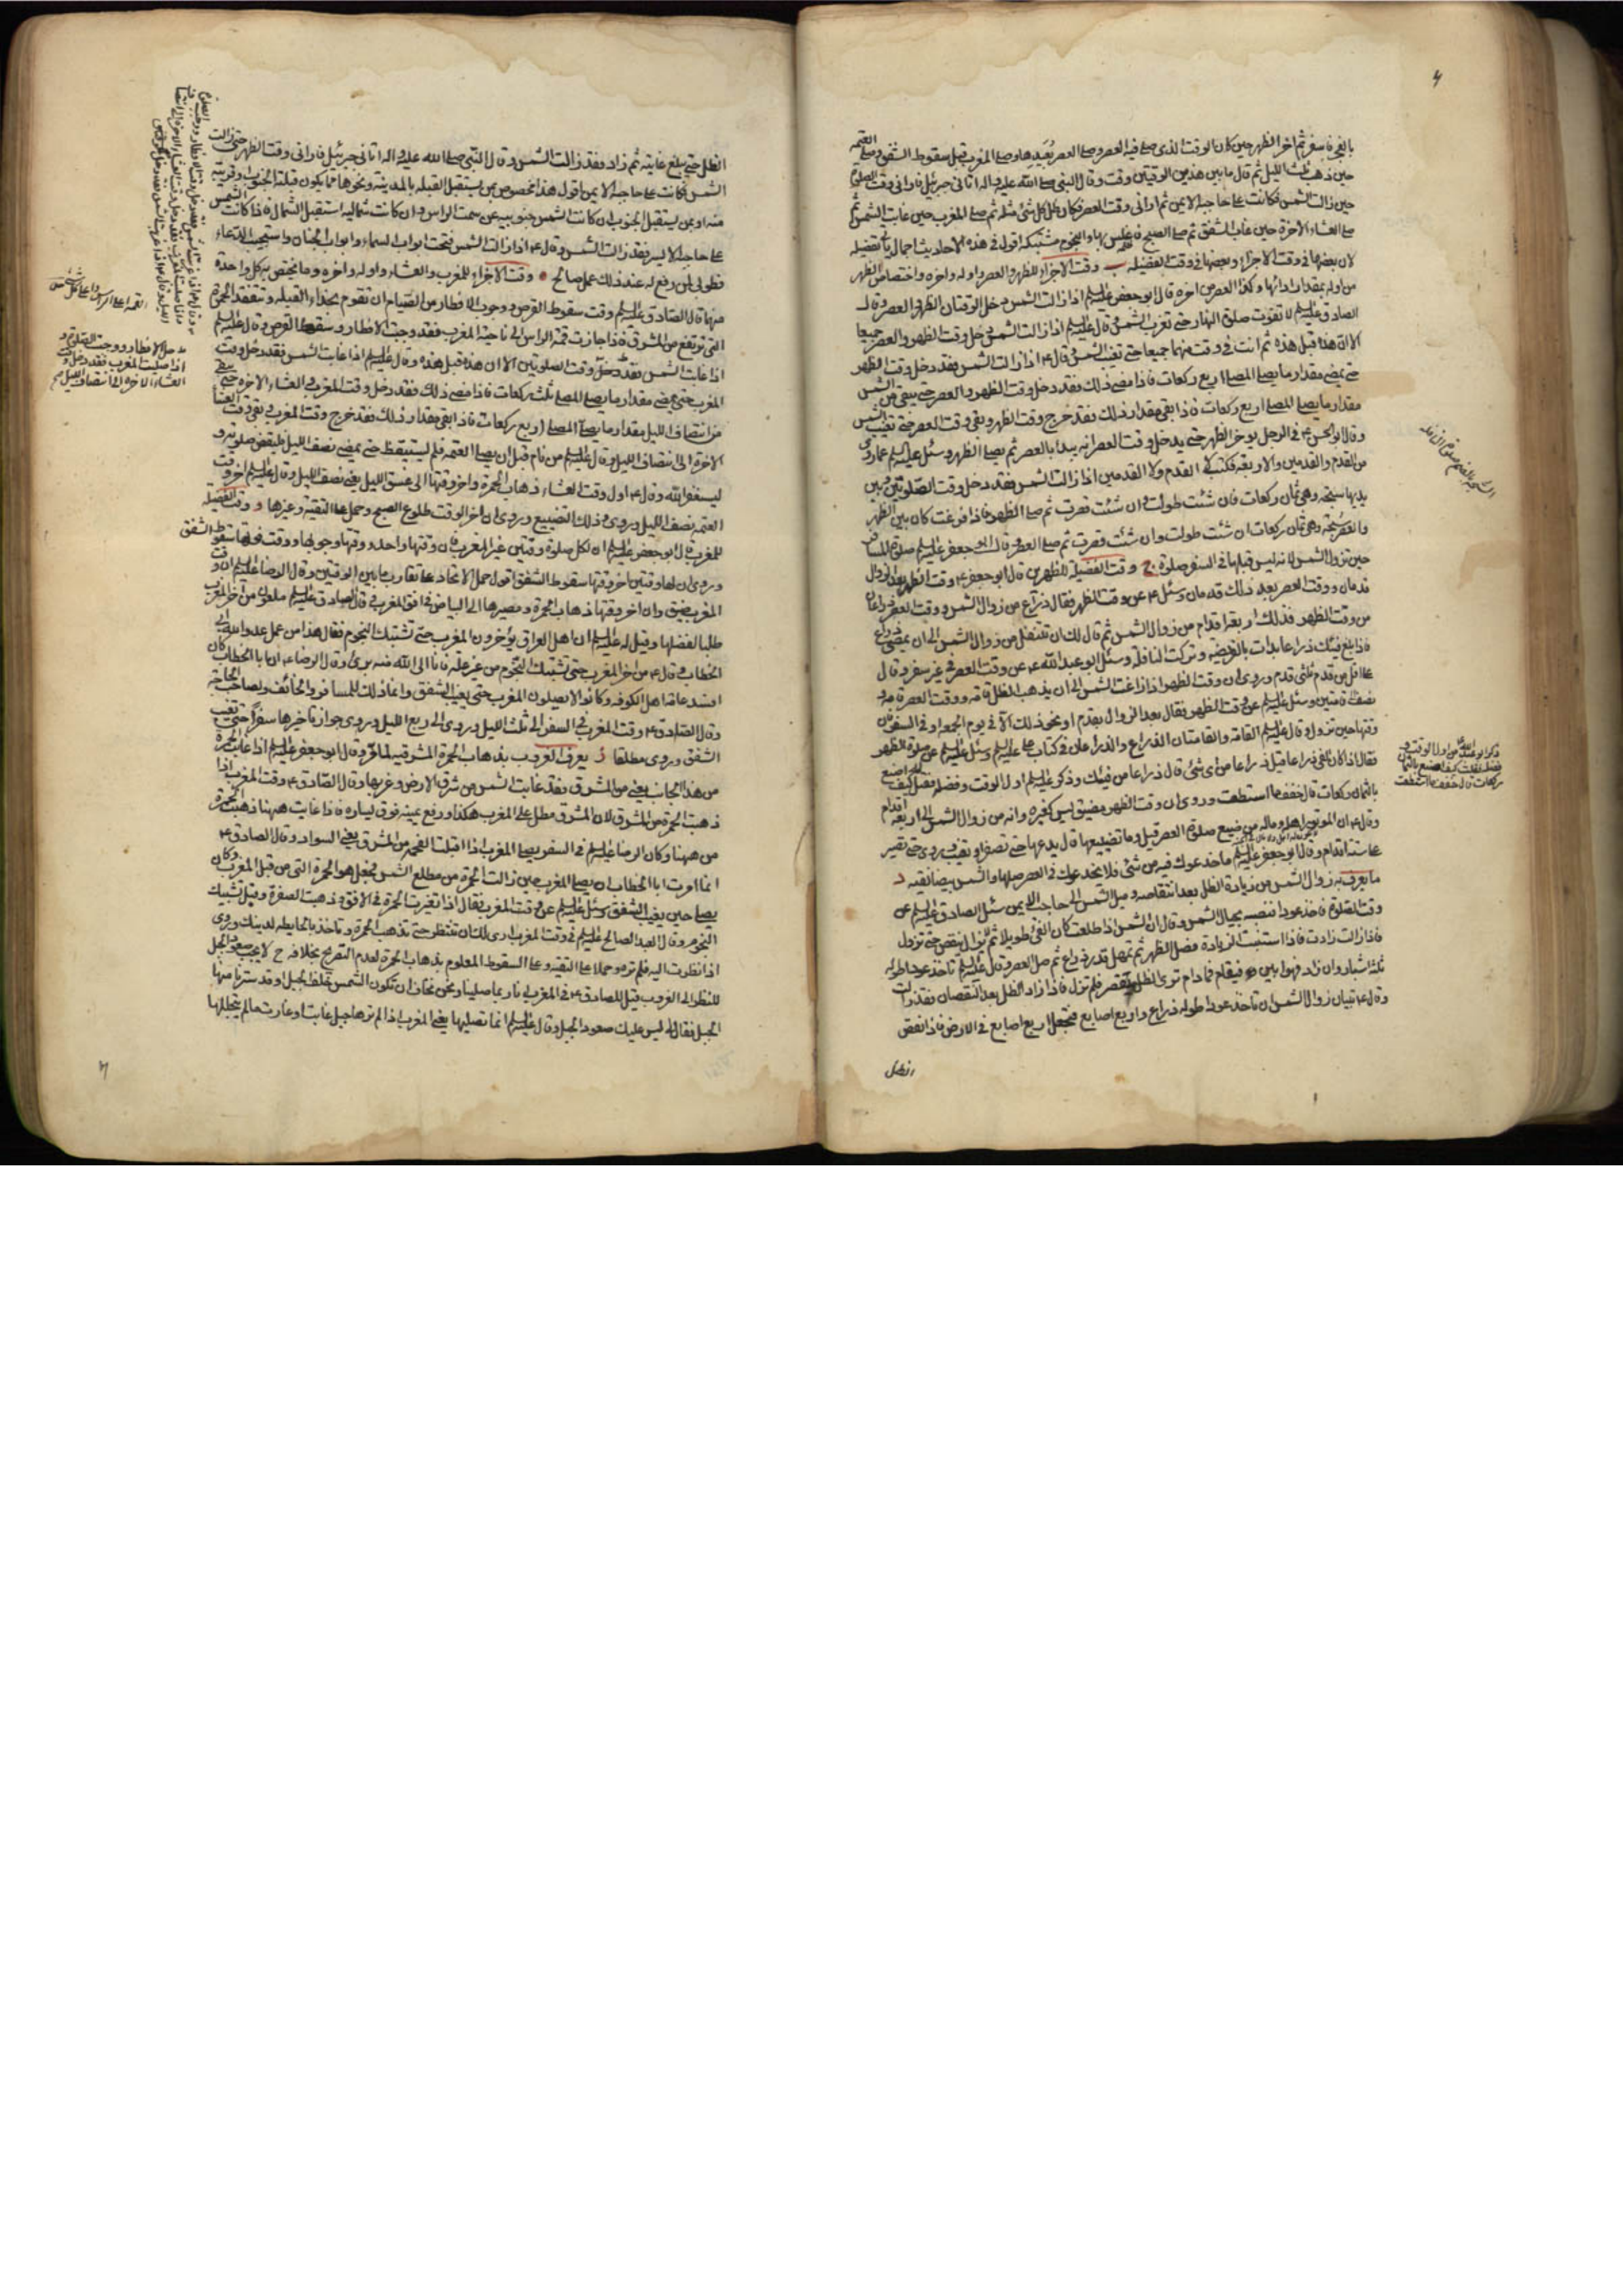 بالفجر فاسفر ثم اخر الظهر حين كان الوقت الذى صلى فيه العصر وصلى العصر بُعَيدها وصلى المغرب قبل سقوط الشفق وصلى العتمه
حين ذهب ثلث الليل ثم قال ما بين هذين الوقتين وقت وقال النبى صلى الله عليه واله اتانى جبرئيل فارانى وقت الصلوة
حين زالت الشمس فكانت على حاجبه الايمن ثم ارانى وقت العصر فكان ظل كل شئ مثله ثم صلى المغرب حين غابت الشمس ثم
صلى العشاء الآخرة حين غاب الشفق ثم صلى الصبح فغلس بها والنجوم مشتبكه اقول فى هذه الاحاديث اجمال ياتى تفصيله
لان بعضها فى وقت الاجزاء وبعضها فى وقت الفضيله ب وقت الاجزاء للظهر والعصر اوله واخره واختصاص الظهر
من اوله بمقدار ادائها وكذا العصر من اخره قال ابو جعفر عليه السلم اذا زالت الشمس دخل الوقتان الظهر والعصر وقال
الصادق عليه السلم لا تفوت صلوة النهار حتى تغرب الشمس وقال عليه السلم اذا زالت الشمس دخل وقت الظهر والعصر جميعا
الا ان هذه قبل هذه ثم انت فى وقت منهما جميعا حتى تغيب الشمس وقال ع اذا زالت الشمس فقد دخل وقت الظهر
حتى يمضى مقدار ما يصلى المصلى اربع ركعات فاذا مضى ذلك فقد دخل وقت الظهر والعصر حتى يبقى من الشمس
مقدار ما يصلى المصلى اربع ركعات فاذا بقى مقدار ذلك فقد خرج وقت الظهر وبقى وقت العصر حتى تغيب الشمس
وقال ابو الحسن ع فى الرجل يوخر الظهر حتى يدخل وقت العصر انه يبدا بالعصر ثم يصلى الظهر وسئل عليه السلم عما روى
من القدم والقدمين والاربعة فكتب لا القدم ولا القدمين اذا زالت الشمس فقد دخل وقت الصلوتين وبين
يديها سبحة وهى ثمان ركعات فان شئت طولت وان شئت قصرت ثم صل الظهر فاذا فرغت كان بين الظهر
والعصر سبحة وهى ثمان ركعات ان شئت طولت وان شئت قصرت ثم صل العصر وقال ابو جعفر عليه السلم صلوة المسافر
حين تزول الشمس لانه ليس قبلها فى السفر صلوة ج وقت الفضيلة للظهرين قال ابو جعفر ع وقت الظهر بعد الزوال
قدمان ووقت العصر بعد ذلك قدمان وسئل ع عن وقت الظهر فقال ذراع من زوال الشمس ووقت العصر ذراعان
من وقت الظهر فذلك اربعة اقدام من زوال الشمس ثم قال لك ان تتنفل من زوال الشمس الى ان يمضى ذراع
فاذا بلغ فيئك ذراعا بدات بالفريضه وتركت النافلة وسئل ابو عبد الله ع عن وقت العصر فى غير سفر وقال
على اقل من قدم ثلثى قدم وروى ان وقت الظهر اذا زاغت الشمس الى ان يذهب الظل قامة ووقت العصر قامة و
نصف الى قامتين وسئل عليه السلم عن وقت الظهر فقال بعد الزوال بقدم او نحو ذلك الا فى يوم الجمعه او فى السفر فان
وقتها حين تزول وقال عليه السلم القامة والقامتان الذراع والذراعان فى كتاب على عليه السلم وسئل عليه السلم عن صلوة الظهر
فقال اذا كان الفئ ذراعا قيل ذراعا من اى شئ قال ذراعا من فيئك وذكر عليه السلم اول الوقت وفضله فقيل كيف اصنع
بالثمان ركعات قال خفف ما استطعت وروى ان وقت الظهر مضيق ليس كغيره وانه من زوال الشمس الى اربعة اقدام
وقال ع ان الموتور اهله وماله من ضيع صلوة العصر قيل وما تضييعها قال يدعها حتى تصفر او تغيب وروى حتى تصير
على ستة اقدام وقال ابو جعفر عليه السلم ما خدعوك فيه من شئ فلا يخدعوك فى العصر صلها والشمس بيضا نقيه د
ما يعرف به زوال الشمس من زيادة الظل بعد انتقاصه وميل الشمس الى حاجب الايمن سئل الصادق عليه السلم عن
وقت الصلوة فاخذ عودا فنصبه بحيال الشمس وقال ان الشمس اذا طلعت كان الفئ طويلا ثم لا يزال ينقص حتى تزول
فاذا زالت زادت فاذا استبنت الزيادة فصل الظهر ثم تمهل قدر ذراع ثم صل العصر وقال عليه السلم تاخذ عودا طوله
ثلثة اشبار وان زاد فهو ابين فيقام فما دام ترى الظل ينقص فلم تزل فاذا زاد الظل بعد النقصان فقد زالت
وقال ع تبيان زوال الشمس ان تاخذ عودا طوله ذراع واربع اصابع فتجعل اربع اصابع فى الارض فاذا نقص
الظل
الظل حتى يبلغ غايته ثم زاد فقد زالت الشمس وقال النبى صلى الله عليه واله اتانى جبرئيل فارانى وقت الظهر حتى زالت
الشمس فكانت على حاجبه الايمن اقول هذا مخصوص بمن يستقبل القبله بالمدينة ونحوها مما يكون قبلته الجنوب او قريبة
منه او بمن يستقبل الجنوب ان كانت الشمس جنوبيه عن سمت الراس وان كانت شماليه استقبل الشمال فاذا كانت الشمس
على حاجبه الايسر فقد زالت الشمس وقال ع اذا زالت الشمس فتحت ابواب السماء وابواب الجنان واستجيب الدعاء
فطوبى لمن رفع له عند ذلك عمل صالح ه وقت الاجزاء للمغرب والعشاء واوله واخره وما يختص به كل واحدة
منها قال الصادق عليه السلم وقت سقوط القرص ووجوب الافطار من الصيام ان تقوم بحذاء القبله وتتفقد الحمرة
التى ترتفع من المشرق فاذا جازت قمة الراس الى ناحية المغرب فقد وجب الافطار وسقط القرص وقال عليه السلم
اذا غابت الشمس فقد دخل وقت الصلوتين الا ان هذه قبل هذه وقال عليه السلم اذا غابت الشمس فقد دخل وقت
المغرب حتى يمضى مقدار ما يصلى المصلى ثلث ركعات فاذا مضى ذلك فقد دخل وقت المغرب والعشاء الاخرة حتى يبقى
من انتصاف الليل مقدار ما يصلى المصلى اربع ركعات فاذا بقى مقدار ذلك فقد خرج وقت المغرب وبقى وقت العشا
الاخرة الى انتصاف الليل وقال عليه السلم من نام قبل ان يصلى العتمه فلم يستيقظ حتى يمضى نصف الليل فليقض صلوته و
ليستغفر الله وقال ع اول وقت العشاء ذهاب الحمرة واخر وقتها الى غسق الليل يعنى نصف الليل وقال عليه السلم اخر وقت
العتمه نصف الليل وروى وذلك التضييع وروى ان اخر الوقت طلوع الصبح وحمل على التقية وغيرها و وقت الفضيله
للمغرب قال ابو جعفر عليه السلم ان لكل صلوة وقتين غير المغرب فان وقتها واحد ووقتها وجوبها ووقت فوتها سقوط الشفق
وروى ان لها وقتين اخر وقتها سقوط الشفق اقول حمل الاتحاد على تقارب ما بين الوقتين وقال الرضا عليه السلم ان وقت
المغرب ضيق وان اخر وقتها ذهاب الحمرة ومصيرها الى البياض فى افق المغرب وقال الصادق عليه السلم ملعون من اخر المغرب
طلبا لفضلها وقيل له عليه السلم ان اهل العراق يؤخرون المغرب حتى تشتبك النجوم فقال هذا من عمل عدو الله ابى
الخطاب وقال ع من اخر المغرب حتى تشتبك النجوم من غير علة فانا الى الله منه برئ وقال الرضا ع ان ابا الخطاب كان
افسد عامة اهل الكوفه وكانوا لا يصلون المغرب حتى يغيب الشفق وانما ذلك للمسافر والخائف ولصاحب الحاجة
وقال الصادق ع وقت المغرب فى السفر الى ثلث الليل وروى الى ربع الليل وروى جواز تاخيرها سفرا حتى تغيب
الشفق وروى مطلقا ز يعرف الغروب بذهاب الحمرة المشرقيه قال ابو جعفر عليه السلم اذا غابت الحمرة
من هذا الجانب يعنى من المشرق فقد غابت الشمس من شرق الارض وغربها وقال الصادق ع وقت المغرب اذا
ذهبت الحمرة من المشرق لان المشرق مطل على المغرب هكذا ورفع يمينه فوق يساره فاذا غابت ههنا ذهبت الحمرة
من ههنا وكان الرضا عليه السلم فى السفر يصلى المغرب اذا اقبلت الفحمه من المشرق يعنى السواد وقال الصادق ع
انما امرت ابا الخطاب ان يصلى المغرب حين زالت الحمرة من مطلع الشمس فجعل هو الحمرة التى من قبل المغرب وكان
يصلى حين يغيب الشفق وسئل عليه السلم عن وقت المغرب فقال اذا تغيرت الحمرة فى الافق وذهبت الصفرة وقبل تشتبك
النجوم وقال العبد الصالح عليه السلم فى وقت المغرب ارى لك ان تنتظر حتى تذهب الحمرة وتاخذ بالحايطه لدينك وروى
اذا نظرت اليه فلم تره وحملا على التقيه وعلى السقوط المعلوم بذهاب الحمرة لعدم التصريح بخلافه ح لا يجب صعود الجبل
للنظر الى الغروب قيل للصادق ع فى المغرب انا ربما صلينا ونحن نخاف ان تكون الشمس خلف الجبل او قد سترنا منها
الجبل فقال له ليس عليك صعود الجبل وقال عليه السلم انما تصليها يعنى المغرب اذا لم ترها خلف جبل غابت او غارت ما لم يتجللها